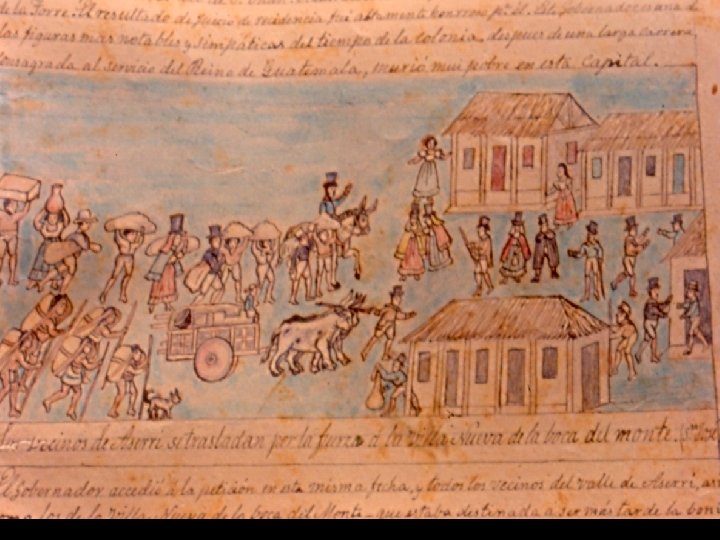 de la Torre. El resultado de juicio de residencia fué altamente honroso pa. él. Este gobernador es una de
las figuras mas notables y simpáticas del tiempo de la colonia, despues de una larga carrera,
consagrada al servicio del Reino de Guatemala, murió mui pobre en esta Capital.
Los vecinos de Aserrí se trasladan por la fuerza á la Villa Nueva de la boca del monte.
El Gobernador accedió á la petición en esta misma fecha, y todos los vecinos del valle de Aserrí, así
como los de la Villa Nueva de la boca del Monte que estaba destinada a ser más tarde la